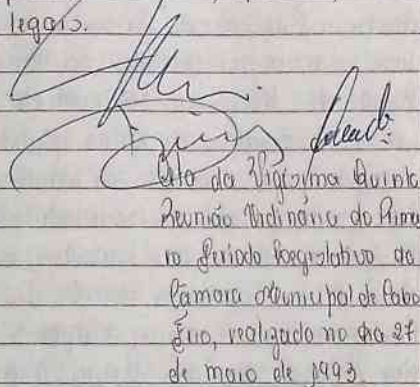 legais.
Ata da Vigésima Quinta
Reunião Ordinária do Primei
ro Período Legislativo da
Câmara Municipal de Cabo
Frio, realizada no dia 27
de maio de 1993.